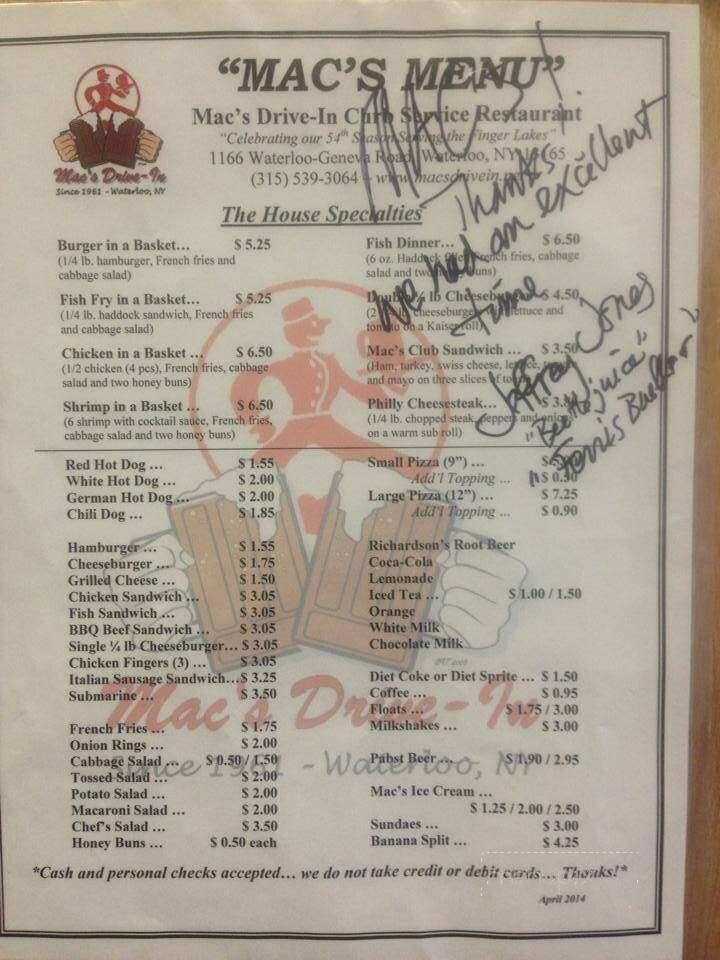 "MAC'S MENU"
Mac's Drive-In Curb Service Restaurant
"Celebrating our 54th Season Serving the Finger Lakes"
1166 Waterloo-Geneva Road, Waterloo, NY 13165
(315) 539-3064 - www.macsdrivein.net
Mac's Drive-In
Since 1961 - Waterloo, NY
MAC'S!
Thanks
We had an excellent
time
Jeffrey Jones
"Beetlejuice"
"Ferris Bueller"
The House Specialties
Burger in a Basket... $ 5.25
(1/4 lb. hamburger, French fries and
cabbage salad)
Fish Fry in a Basket... $ 5.25
(1/4 lb. haddock sandwich, French fries
and cabbage salad)
Chicken in a Basket ... $ 6.50
(1/2 chicken (4 pcs), French fries, cabbage
salad and two honey buns)
Shrimp in a Basket ... $ 6.50
(6 shrimp with cocktail sauce, French fries,
cabbage salad and two honey buns)
Fish Dinner... $ 6.50
(6 oz. Haddock fillet, French fries, cabbage
salad and two buns)
Double ¼ lb Cheeseburger $ 4.50
(2 cheeseburger lettuce and
tomato on a Kaiser roll)
Mac's Club Sandwich ... $ 3.50
(Ham, turkey, swiss cheese, lettuce,
and mayo on three slices of toast)
Philly Cheesesteak...
(1/4 lb. chopped steak, peppers and onions
on a warm sub roll)
Red Hot Dog ... $ 1.55
White Hot Dog ... $ 2.00
German Hot Dog ... $ 2.00
Chili Dog ... $ 1.85
Hamburger ... $ 1.55
Cheeseburger ... $ 1.75
Grilled Cheese ... $ 1.50
Chicken Sandwich ... $ 3.05
Fish Sandwich ... $ 3.05
BBQ Beef Sandwich ... $ 3.05
Single ¼ lb Cheeseburger... $ 3.05
Chicken Fingers (3) ... $ 3.05
Italian Sausage Sandwich...$ 3.25
Submarine ... $ 3.50
French Fries ... $ 1.75
Onion Rings ... $ 2.00
Cabbage Salad ... $ 0.50 / 1.50
Tossed Salad ... $ 2.00
Potato Salad ... $ 2.00
Macaroni Salad ... $ 2.00
Chef's Salad ... $ 3.50
Honey Buns ... $ 0.50 each
Small Pizza (9") ...
Add'l Topping ... $ 0.50
Large Pizza (12") ... $ 7.25
Add'l Topping ... $ 0.90
Richardson's Root Beer
Coca-Cola
Lemonade
Iced Tea ... $ 1.00 / 1.50
Orange
White Milk
Chocolate Milk
Diet Coke or Diet Sprite ... $ 1.50
Coffee ... $ 0.95
Floats ... $ 1.75 / 3.00
Milkshakes ... $ 3.00
Pabst Beer ... $ 1.90 / 2.95
Mac's Ice Cream ...
$ 1.25 / 2.00 / 2.50
Sundaes ... $ 3.00
Banana Split ... $ 4.25
Mac's Drive-In
Since 1961 - Waterloo, NY
*Cash and personal checks accepted... we do not take credit or debit cards... Thanks!*
April 2014